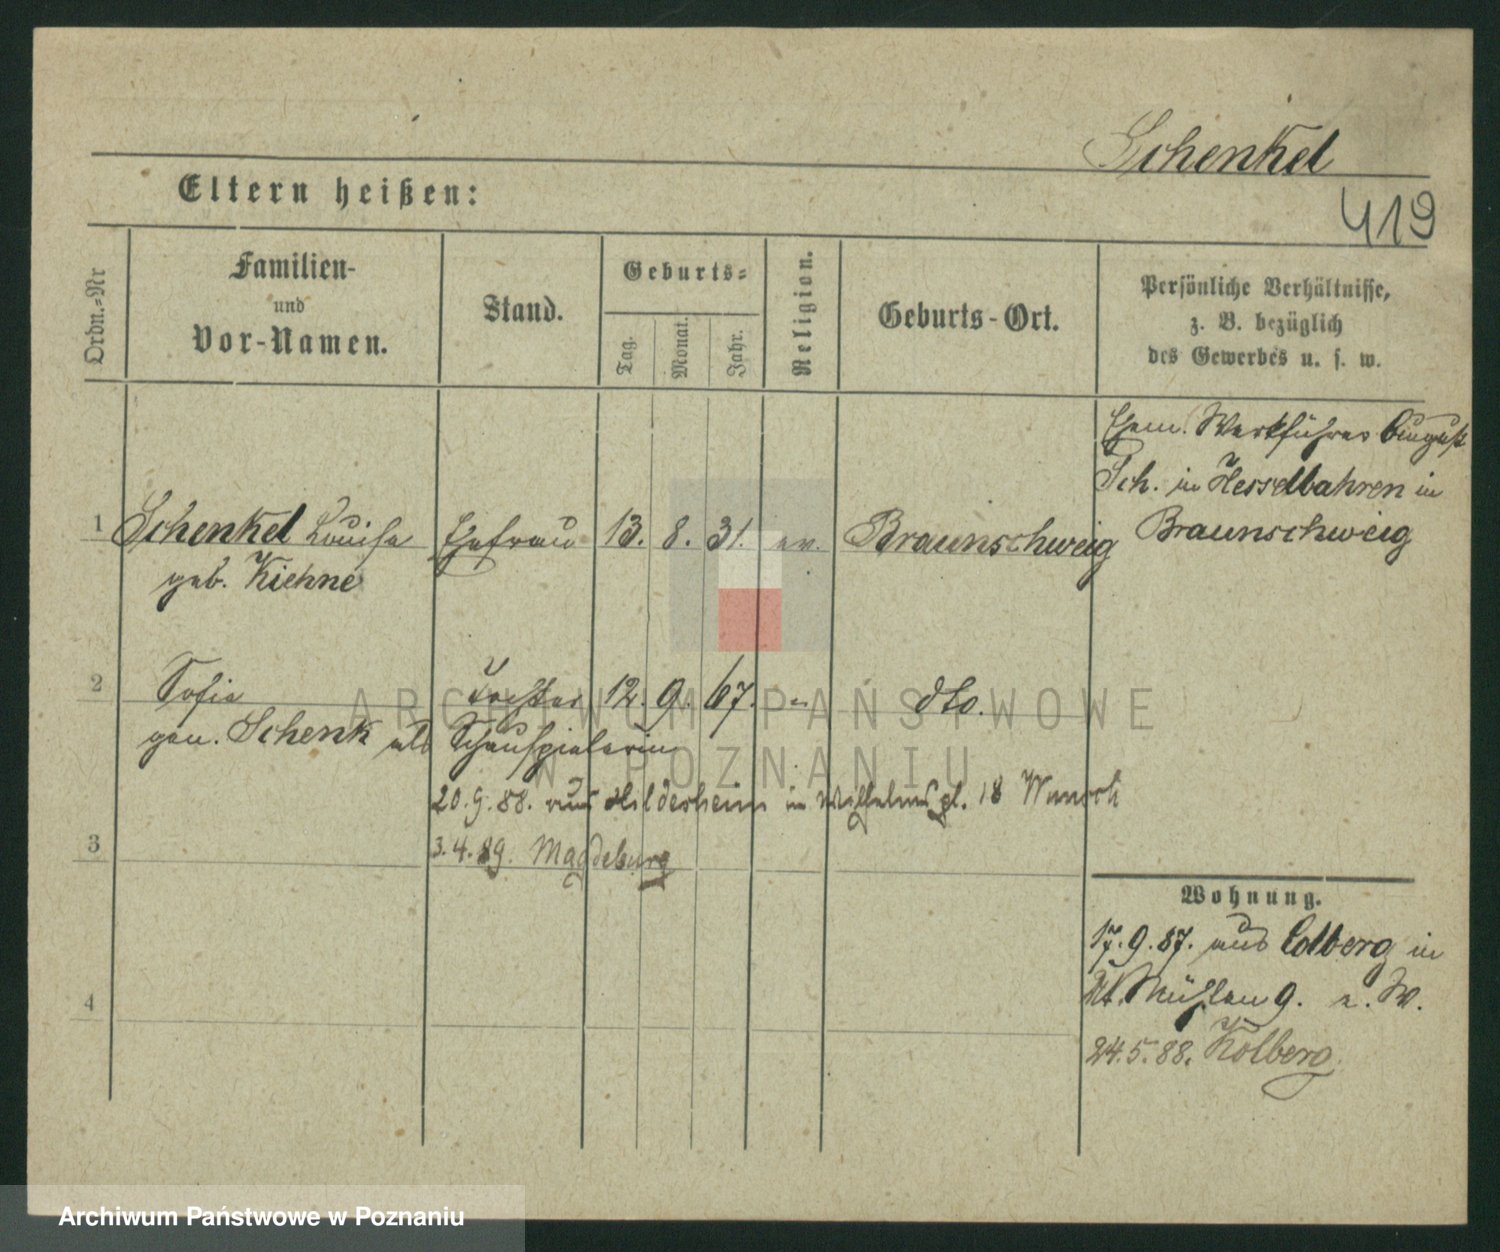 Schenkel
Eltern heißen:
419
Ordn.=Nr
Familien-
und
Vor-Namen.
Stand.
Geburts=
Tag.
Monat.
Jahr.
Religion.
Geburts-Ort.
Persönliche Verhältnisse,
z. B. bezüglich
des Gewerbes u. s. w.
Ehem. Werkführer August
Sch. in
Braunschweig
1 Schenkel Louise Ehefrau 13. 8. 31. ev. Braunschweig
geb. Kiehne
2 Sofie Tochter 12. 9. 67. " dto.
gen. Schenk als Schauspielerin
20.9.88. aus Hildesheim in Wilhelmspl. 18
3 3.4.89. Magdeburg
4
Wohnung.
17.9.87. aus Colberg in
Mühlen 9. W.
24.5.88. Kolberg.
ARCHIWUM PAŃSTWOWE
W POZNANIU
Archiwum Państwowe w Poznaniu